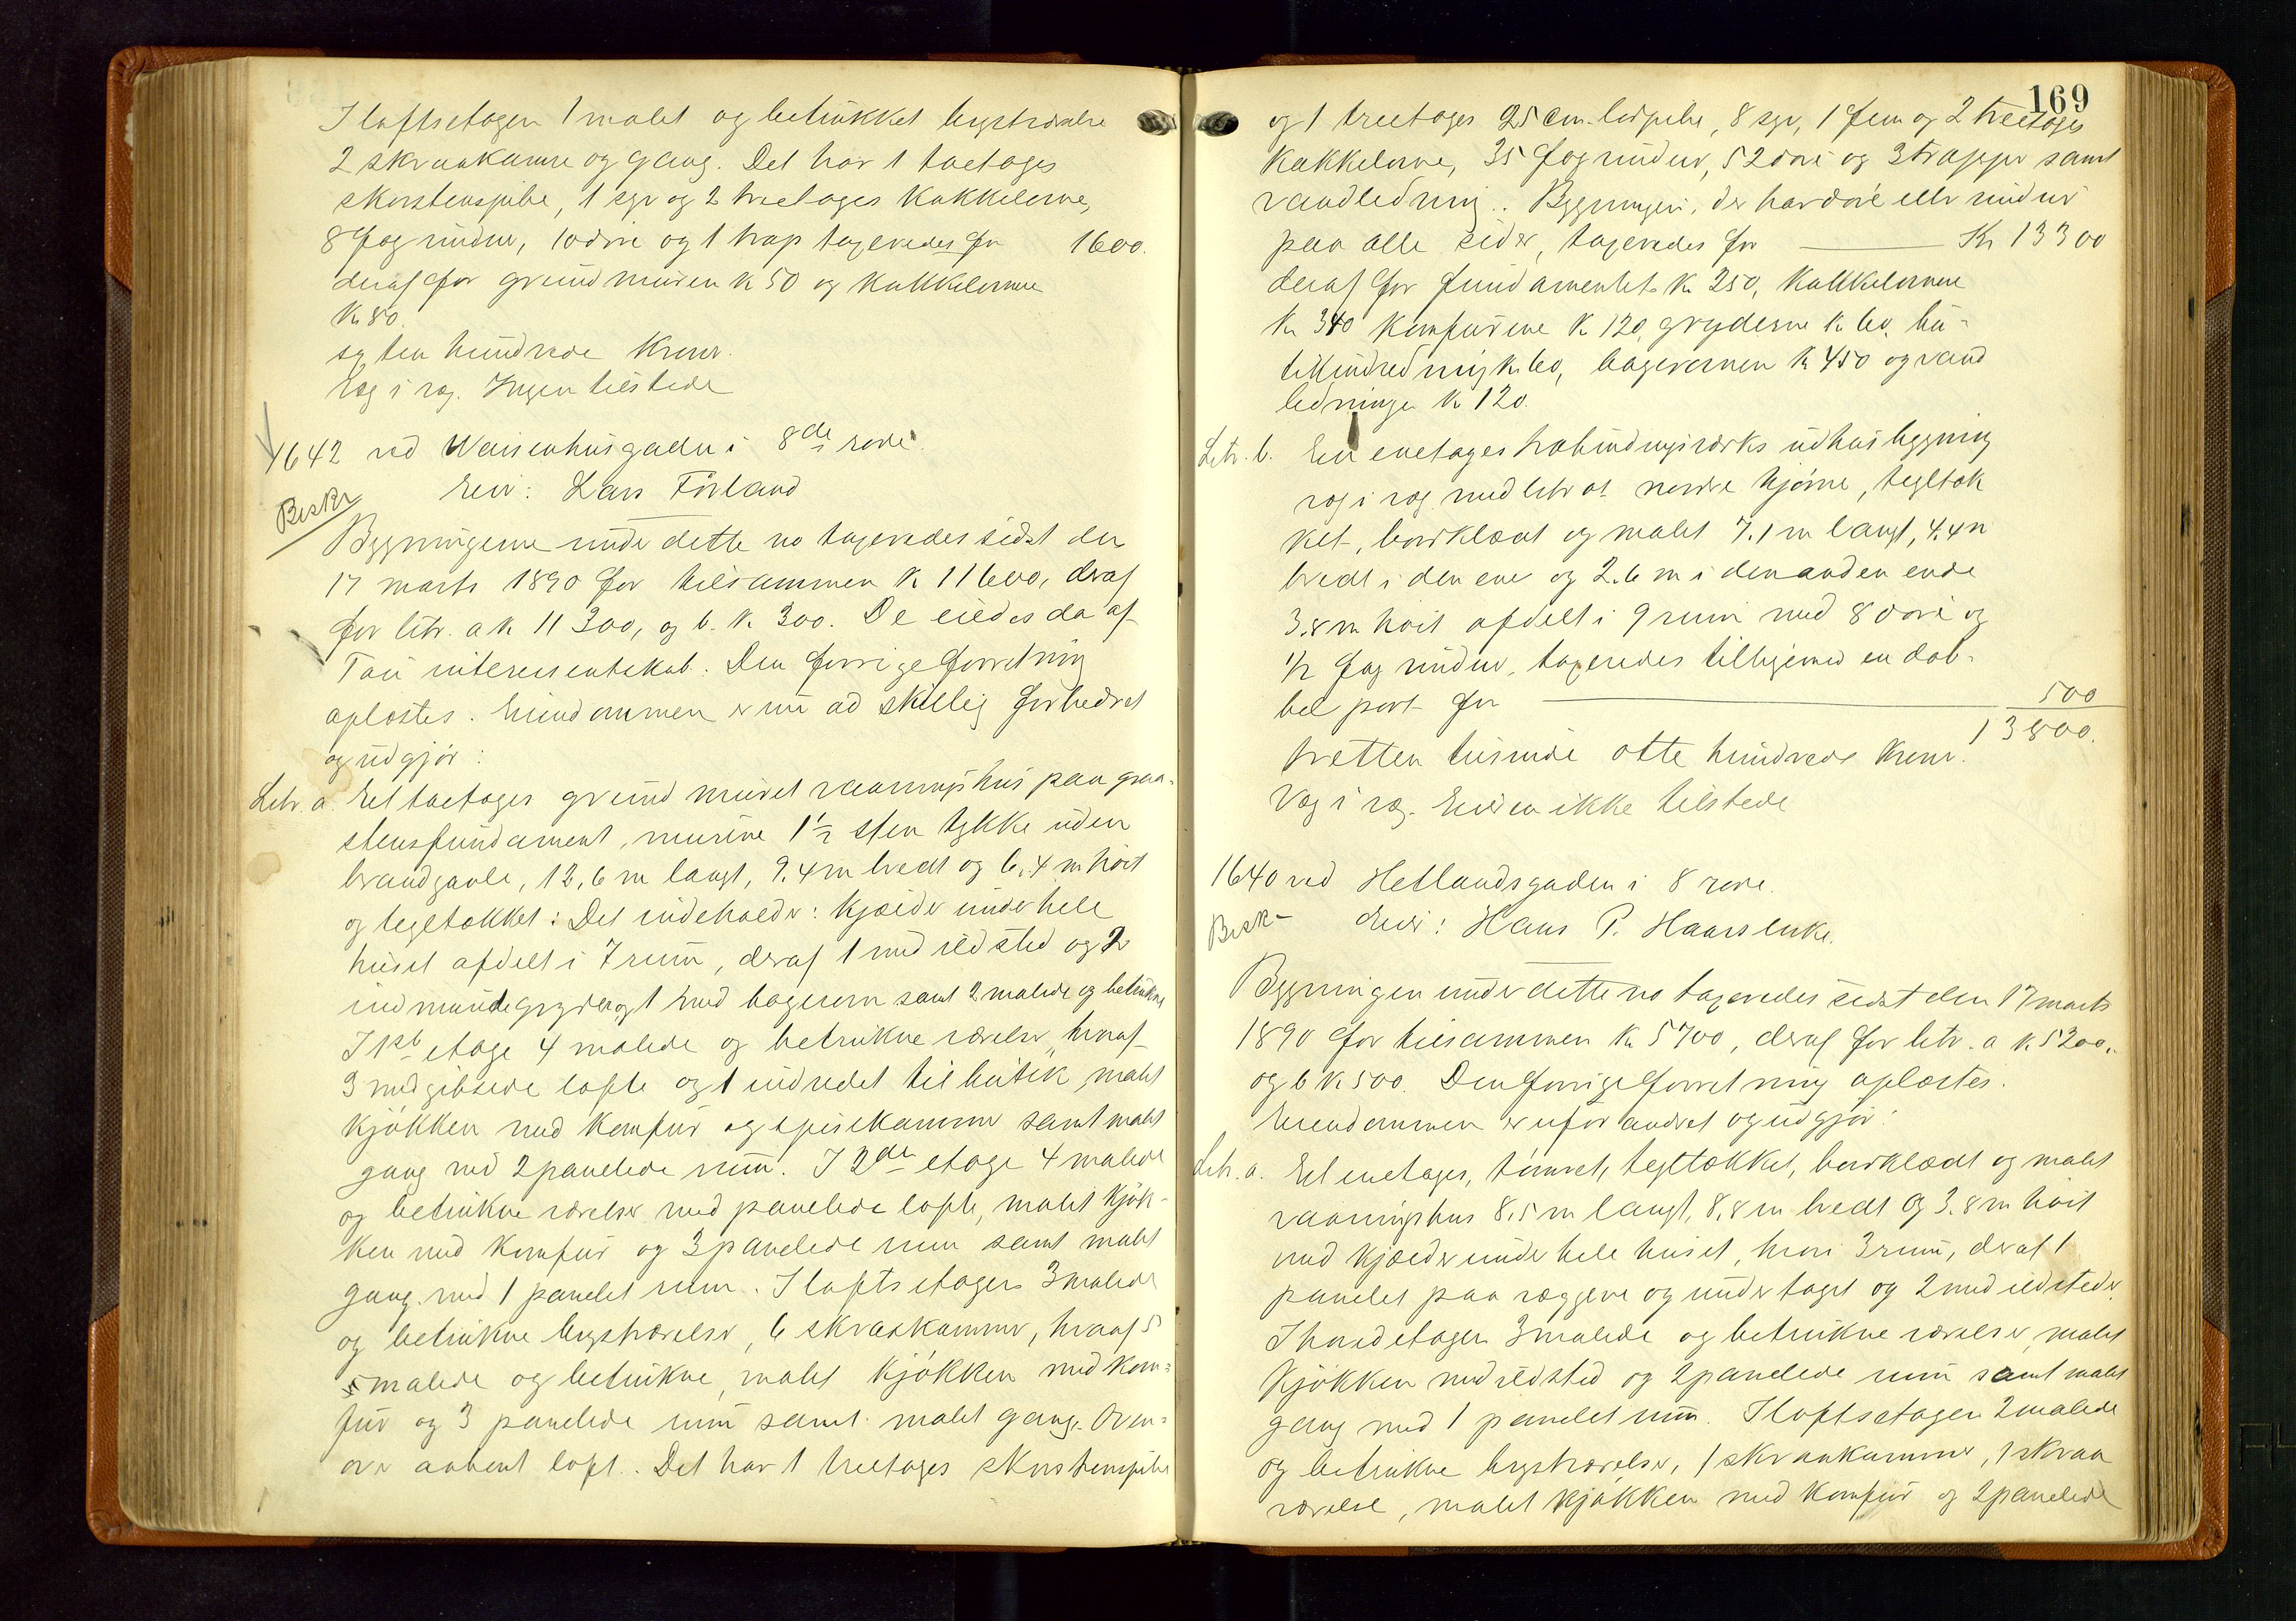 I loftsetagen 1 malet og betrukket brystværelse
2 skraakamre og gang. Det har 1 toetages
skorstenspibe, 1 syv og 2 treetages kakkelovne,
8 fag vinduer, 10 døre og 1 trap taxeredes for 1600.
deraf for grundmuren k 50 og kakkelovnene
Kr 80.
sexten hundrede Kroner.
Væg i væg. Ingen tilstede
1642 ved Waisenhusgaden i 8de rode.
Beskr
Eier: Lars Førland
Bygningerne under dette no taxeredes sidst den
17 marts 1890 for tilsammen K 11600, deraf
for litr. a k 11300, og b. k. 300. De eiedes da af
Tau interessentskab. Den forrige forretning
oplæstes. Eiendommen er nu adskillig forbedret
og udgjør:
Litr. a. Et toetages grundmuret vaaningshus paa graa-
stensfundament, murene 1½ sten tykke uden
brandgavle, 12,6 m langt, 9.4 m bredt og 6,4 m høit
og tegltækket: Det indeholder: kjælder under hele
huset afdelt i 7 rum, deraf 1 med ildsted og 2
indmurede gryder og 1 med bagerovn samt 2 malede og betrukne
I 1ste etage 4 malede og betrukne værelser, hvoraf
3 med gibsede lofte og 1 indredet til butik, malet
kjøkken med komfur og spisekammer samt malet
gang med 2 panelede rum. I 2den etage 4 malede
og betrukne værelser med panelede lofte, malet kjøk-
ken med komfur og 3 panelede rum samt malet
gang med 1 panelet rum. I loftsetagen 3 malede
og betrukne brystværelser, 6 skraakammer, hvoraf 5
malede og betrukne, malet kjøkken med kom-
fur og 3 panelede rum samt malet gang. Oven-
over aabent loft. Det har 1 treetages skorstenspibe
169
og 1 treetages 25 cm. ledpibe, 8 syv, 1 fem og 2 treetages
kakkelovne, 35 fag vinduer, 52 døre og 3 trapper samt
vandledning. Bygningen, der har døre eller vinduer
paa alle sider, taxeredes for Kr 13300
deraf for fundamentet k. 250, kakkelovnene
Kr 340 komfurene K 120, gryderne k 60, bu-
tikindredning k. 60, bagerovnen k 450 og vand
ledningen K 120.
Litr. b. En enetages halvbindingsværks udhusbygning
væg i væg med litr a's nordre hjørne, tegltæk
ket, bordklædt og malet 7.1 m langt, 4.4 m
bredt i den ene og 2.6 m i den anden ende
3.8 m høit afdelt i 9 rum med 8 døre og
1/2 fag vinduer, taxeredes tilligemed en dob-
bel port for 500
13800.
tretten tusinde otte hundrede kroner.
Væg i væg. Eieren ikke tilstede
1640 ved Hetlandsgaden i 8 rode.
Beskr
Eier: Hans P. Haarsluke.
Bygningen under dette no taxeredes sidst den 17 marts
1890 for tilsammen K 5700, deraf for litr. a k 5200,
og b k 500. Den forrige forretning oplæstes.
Eiendommen er uforandret og udgjør:
Litr. a. Et enetages, tømret, tegltækket, bordklædt og malet
vaaningshus 8,5 m langt, 8,8 m bredt og 3.8 m høit
med kjælder under hele huset, hvori 3 rum, deraf 1
panelet paa væggene og under taget og 2 med ildsteder.
I hovedetagen 3 malede og betrukne værelser, malet
kjøkken med ildsted og 2 panelede rum samt malet
gang med 1 panelet rum. I loftsetagen 2 malede
og betrukne brystværelser, 1 skraakammer, 1 skraa
værelse, malet kjøkken med komfur og 2 panelede